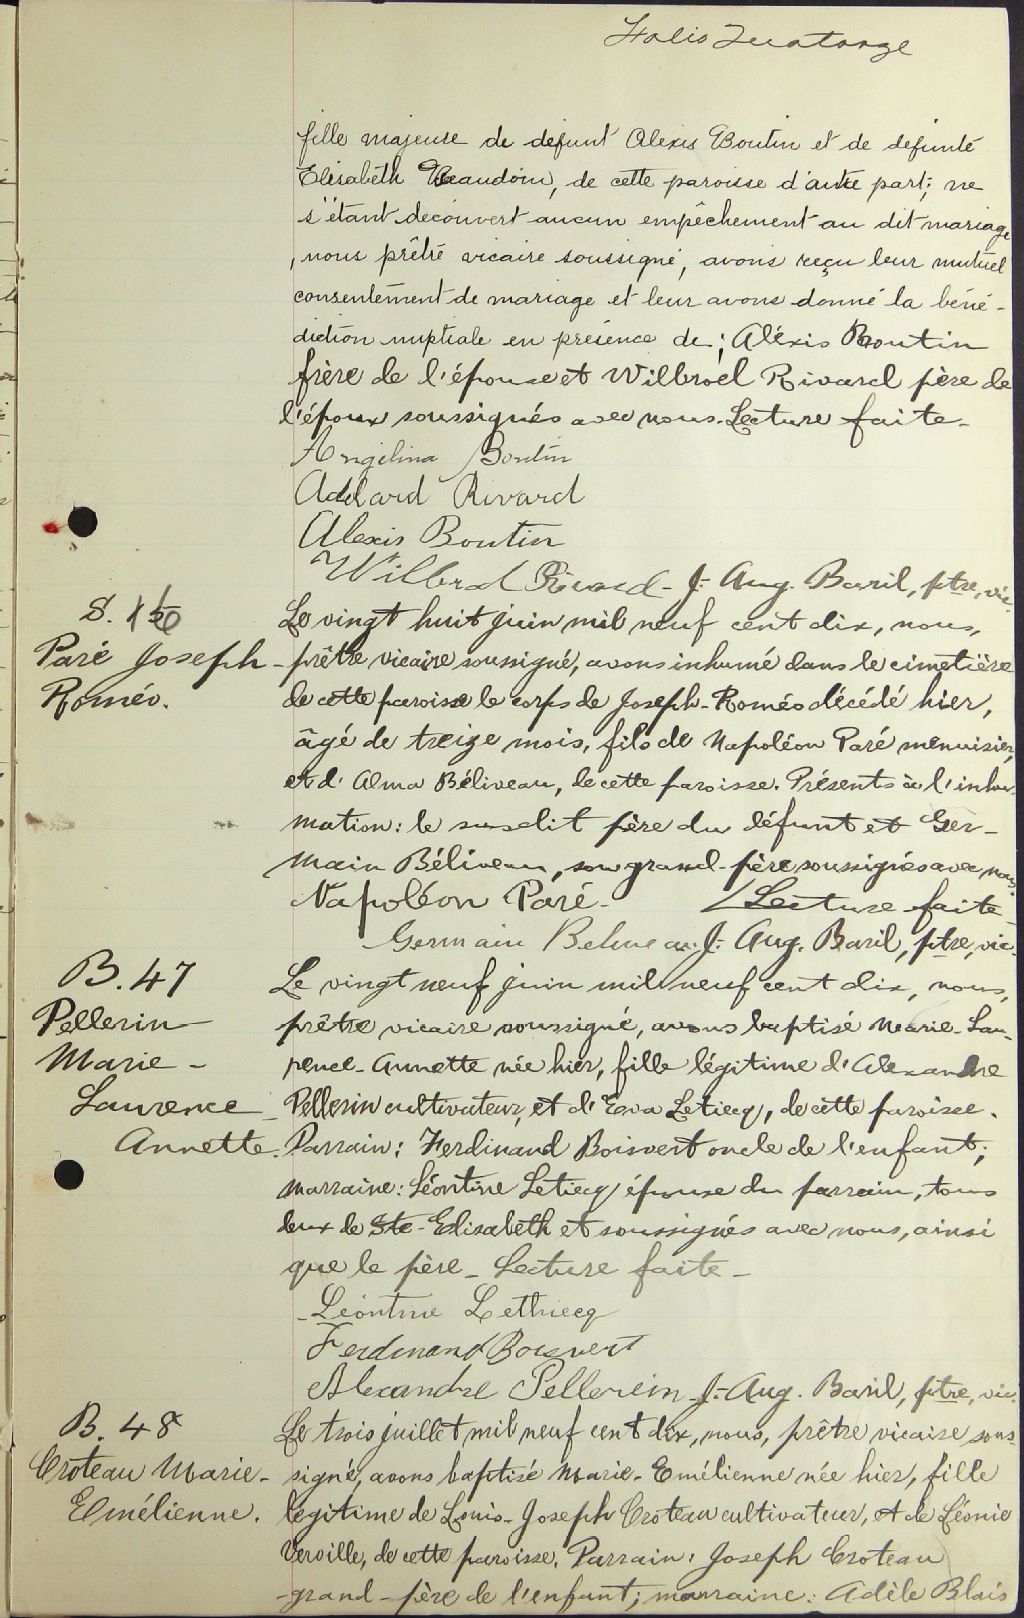 Folio Quatorze
fille majeure de défunt Alexis Boutin et de défunte
Elisabeth Beaudoin, de cette paroisse d'autre part; ne
s'étant découvert aucun empêchement au dit mariage
, nous prêtre vicaire soussigné, avons reçu leur mutuel
consentement de mariage et leur avons donné la béné-
diction nuptiale en présence de; Aléxis Boutin
frère de l'épouse et Wilbroel Rivard père de
l'époux soussignés avec nous. Lecture faite.
Angelina Boutin
Adélard Rivard
Alexis Boutin
Wilbrod Rivard - J.- Aug. Baril, ptre, vic.
S.
Paré Joseph-
Roméo.
Le vingt huit juin mil neuf cent dix, nous,
prêtre vicaire soussigné, avons inhumé dans le cimetière
de cette paroisse le corps de Joseph-Roméo décédé hier,
âgé de treize mois, fils de Napoléon Paré menuisier,
et d'Alma Béliveau, de cette paroisse. Présents à l'inhu-
mation: le susdit père du défunt et Ger-
main Béliveau, son grand-père soussignés avec nous.
Napoléon Paré - / Lecture faite
Germain Beliveau J.- Aug. Baril, ptre, vic.
B. 47
Pellerin
Marie-
Laurence
Annette.
Le vingt neuf juin mil neuf cent dix, nous,
prêtre vicaire soussigné, avons baptisé Marie-Lau-
rence-Annette née hier, fille légitime d'Alexandre
Pellerin cultivateur, et d'Eva Letiecq, de cette paroisse.
Parrain: Ferdinand Boisvert oncle de l'enfant;
marraine: Léontine Letiecq épouse du parrain, tous
deux de Ste-Elisabeth et soussignés avec nous, ainsi
que le père - Lecture faite -
Léontine Lethiecq
Ferdinand Boisvert
Alexandre Pellerein J.- Aug. Baril, ptre, vic.
B. 48
Croteau Marie-
Emélienne.
Le trois juillet mil neuf cent dix, nous, prêtre vicaire sous-
signé, avons baptisé Marie-Emélienne née hier, fille
légitime de Louis-Joseph Croteau cultivateur, et de Léonie
Verville, de cette paroisse. Parrain: Joseph Croteau
grand-père de l'enfant; marraine: Adèle Blais